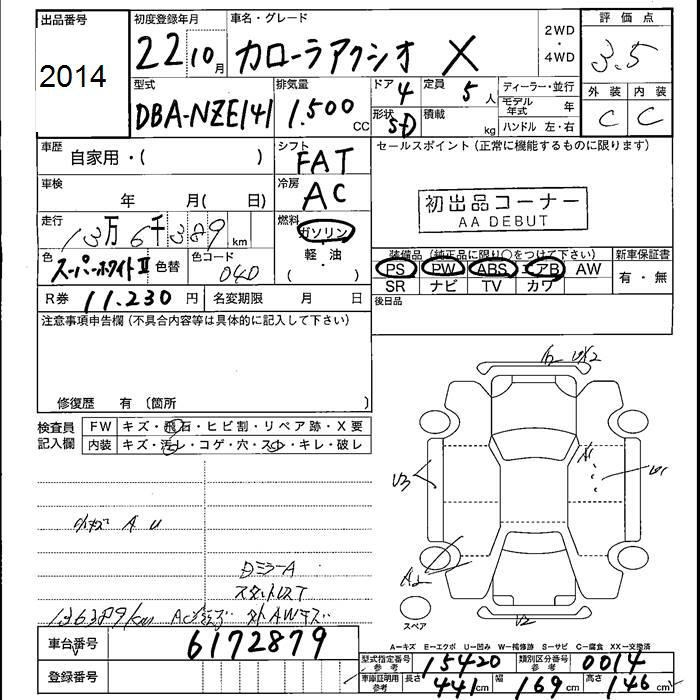 出品番号 初度登録年月 車名・グレード 評価点
2014 22 10月 カローラアクシオ X 2WD・4WD 3.5
型式 排気量 ドア 4 定員 5人 ディーラー・並行 外装 内装
DBA-NZE141 1.500CC 形状 SD 積載 kg モデル年式 年 C C
ハンドル 左・右
車歴 自家用・( ) シフト FAT セールスポイント(正常に機能するものに限ります)
車検 年 月( 日) 冷房 AC 初出品コーナー
AA DEBUT
走行 13万6千389km 燃料 ガソリン
軽・油
( )
色 スーパーホワイトII 色替 色コード 040 装備品(純正品に限り○をつけて下さい) 新車保証書
PS PW ABS エアB AW 有・無
SR ナビ TV カワ
R券 11.230円 名変期限 月 日 後日品
注意事項申告欄(不具合内容等は具体的に記入して下さい)
修復歴 有 〔箇所 〕
検査員記入欄 FW キズ・飛石・ヒビ割・リペア跡・X要
内装 キズ・汚レ・コゲ・穴・スレ・キレ・破レ
U2
A1
U1
U3
A U
DミラーA
A2
スタットレスT
136389km 外AWキズ
U2
スペア
車台番号 6172879
A=キズ E=エクボ U=凹み W=補修跡 S=サビ C=腐食 XX=交換済
型式指定番号 参考 15420 類別区分番号 参考 0014
登録番号 車庫証明用 参考 長さ 441cm 幅 169cm 高さ 146cm